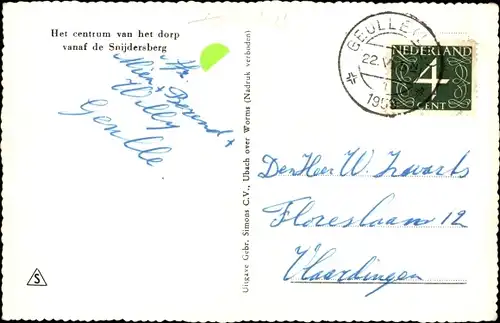 Het centrum van het dorp
vanaf de Snijdersberg
Mien + Berend +
Willy
Geulle
Uitgave Gebr. Simons C.V., Ubach over Worms (Nadruk verboden)
GEULLE
22.V
195
NEDERLAND
4
CENT
Den Heer W. Zwarts
Floreslaan 12
Vlaardingen
S